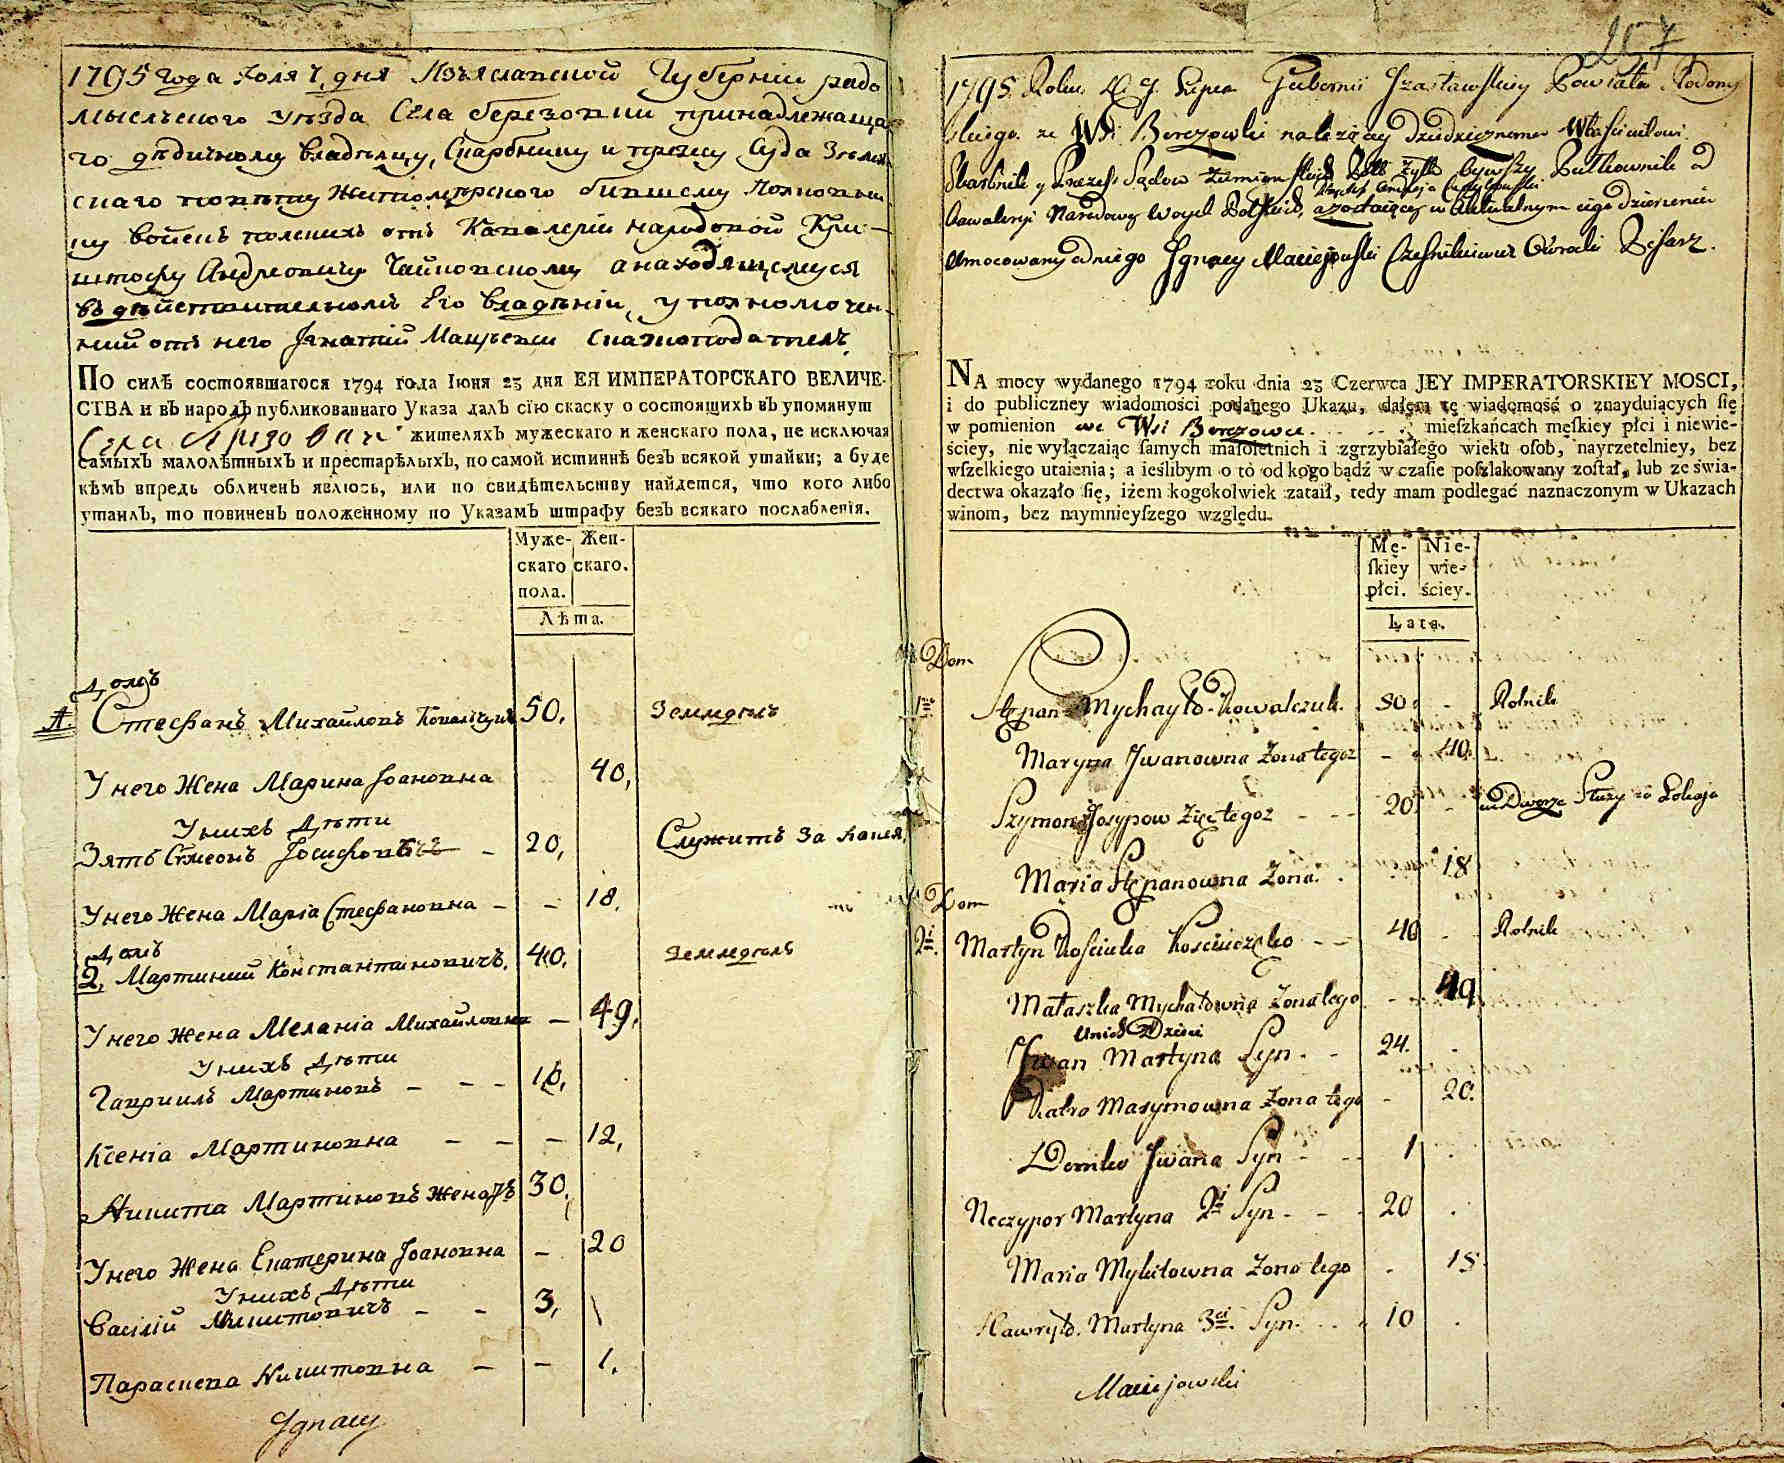 257
1795 года Іюля 7, дня Изъяславской Губерніи радо
мысльского уѣзда Села березовки принадлежаща
го дѣдичному владѣльцу, Скарбнику и презесу Суда Земля
скаго повѣту Житомѣрского бывшему Полковни
ку войскъ полскихъ отъ Кавалеріи народовой Кри-
штофу Андреовичу Чайковскому а находящемуся
въ дѣйствительномъ Его владѣніи, уполномочен-
ний отъ него Игнатій Мацѣевски Сказкоподатель
По силѣ состоявшагося 1794 года Іюня 23 дня ЕЯ ИМПЕРАТОРСКАГО ВЕЛИЧЕ-
СТВА и въ народѣ публикованнаго Указа далъ сію скаску о состоящихъ въ упомянут
Села Березовки жителяхъ мужескаго и женскаго пола, не исключая
самыхъ малолѣтныхъ и престарѣлыхъ, по самой истиннѣ безъ всякой утайки; а буде
кѣмъ впредь обличенъ явлюсь, или по свидѣтельству найдется, что кого либо
утаилъ, то повиненъ положенному по Указамъ штрафу безъ всякаго послабленія.
Муже- Жен-
скаго скаго.
пола.
Лѣта.
Домъ
1. Стефанъ Михайловъ Ковальчукъ 50, Земледѣлъ
У него Жена Марина Іоановна 40,
У нихъ Дѣти
Зять Симеонъ Іосифовъ - 20, Служитъ За
У него Жена Марія Стефановна - - 18.
Домъ
2, Мартиний Константиновичъ. 40, Земледѣлъ
У него Жена Меланія Михайловна - 49,
У нихъ Дѣти
Гавриилъ Мартиновъ - - - 10,
Ксенія Мартиновна - - - 12,
Никита Мартиновъ женатъ 30,
У него Жена Екатерина Іоановна - 20
У нихъ Дѣти
Василій Никитовичъ - - 3,
Параскева Никитовна - - 1.
Ignacy
1795 Roku D. 7. Lipca Gubernii Jzasławskiey Powiatu Radomy
slskiego ze Wsi Berezowki należącey Dziedzicznemu Właścicielowi
Skarbnik y Prezess Sądow Ziemianskich Pttu Żyttο bywszy Pułkownik
Krysztof Andrzeja Czaykowski
kawaleryi Narodowey Woysk Polskich, a zostaiącey w aktualnym iego dzierżeniu
Umocowany od niego Jgnacy Maciejowski Cześnikiewicz Owrucki Pisarz.
NA mocy wydanego 1794 roku dnia 23 Czerwca JEY IMPERATORSKIEY MOSCI,
i do publiczney wiadomości podanego Ukazu, dałem tę wiadomość o znayduiących się
w pomienion we Wsi Berezowce mieſzkańcach męſkiey płci i niewie-
ściey, nie wyłączaiąc ſamych małoletnich i zgrzybiałego wieku osob, nayrzetelniey, bez
wſzelkiego utaienia; a ieślibym o to od kogo bądź w czaſie poſzlakowany zoſtał, lub ze świa-
dectwa okazało ſię, iżem kogokolwiek zataił, tedy mam podlegać naznaczonym w Ukazach
winom, bez naymnieyſzego względu.
Mę- Nie-
ſkiey wie-
płci. ściey.
Lata.
Dom
1szy Stepan Mychayło Kowalczuk 50. - Rolnik
Maryna Jwanowna Żona tegoż - 40.
Szymon Josypow Zięć tegoż - - - 20. we Dworze Służy za Lokaja
Maria Stepanowna Żona. 18
Dom
2i. Martyn Kościuka Kosciuczenko - - 40 - Rolnik
Małaszka Mychałowna Żona tego - 49
Unich Dzieci
Jwan Martyna Syn - - 24. -
Katra Maxymowna Żona tego - 20.
Demko Jwana Syn - - 1 .
Neczypor Martyna 2i Syn - - - 20 .
Maria Mykitowna Żona tego - 18.
Hawryło. Martyna 3ci. Syn. - - - 10 .
Maciejowski